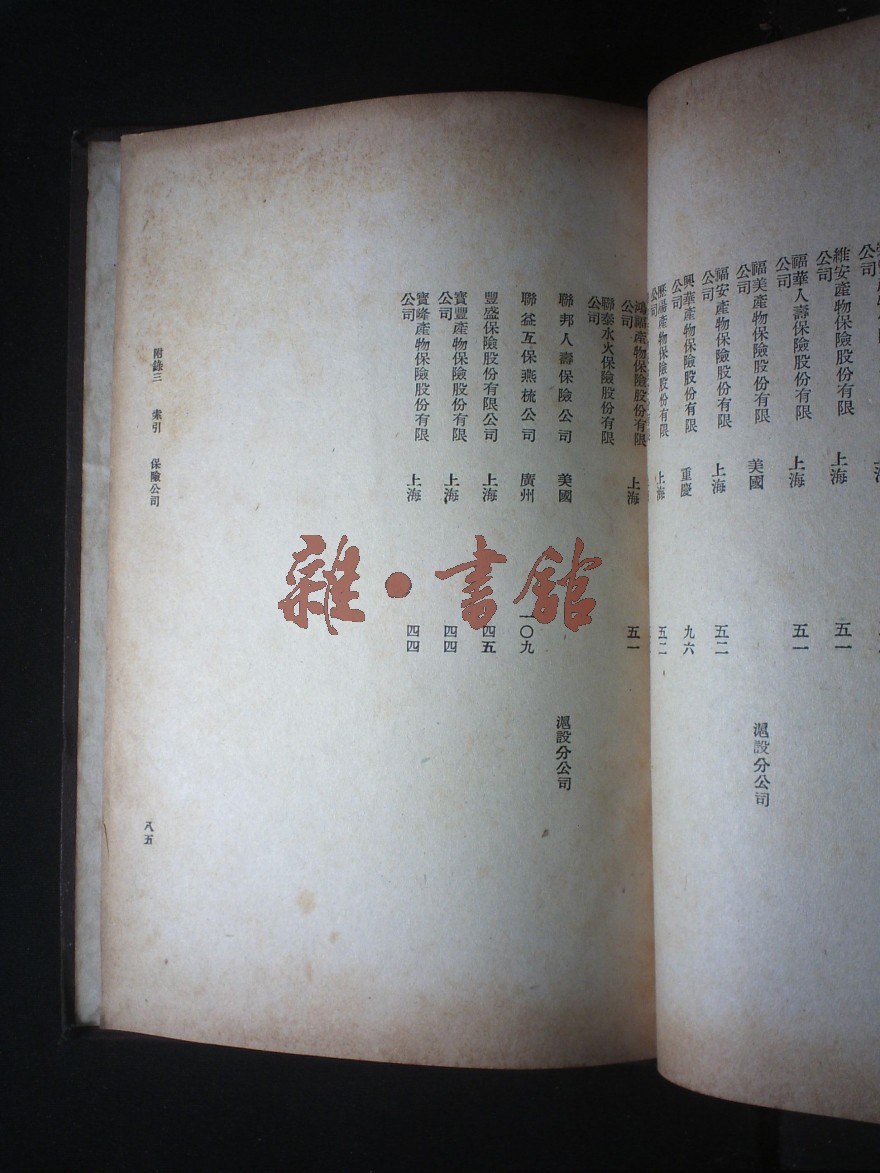 公司
維安產物保險股份有限
公司
上海
五一
福華人壽保險股份有限
公司
上海
五一
福美產物保險股份有限
公司
美國
滬設分公司
福安產物保險股份有限
公司
上海
五二
興華產物保險股份有限
公司
重慶
九六
產物保險股份有限
公司
上海
五二
鴻福產物保險股份有限
公司
上海
五一
聯泰水火保險股份有限
公司
聯邦人壽保險公司
美國
滬設分公司
聯益互保燕梳公司
廣州
一〇九
豐盛保險股份有限公司
上海
四五
寶豐產物保險股份有限
公司
上海
四四
寶峰產物保險股份有限
公司
上海
四四
附錄三 索引 保險公司
八五
雜•書館